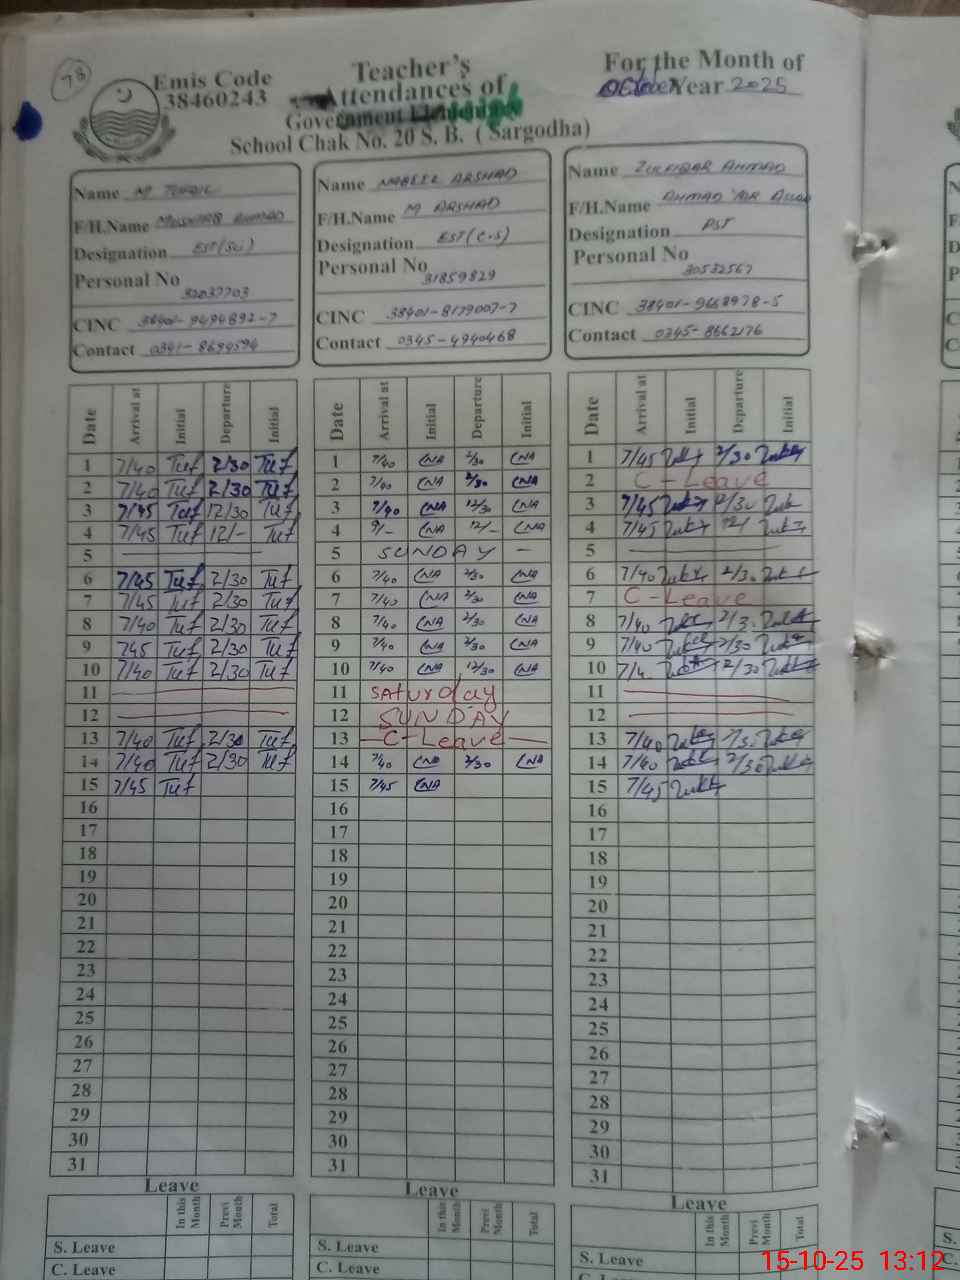 78
Emis Code
38460243
Teacher's
Attendances of
Government
School Chak No. 20 S. B. ( Sargodha)
For the Month of
October Year 2025
Name M TUFAIL
F/H.Name AHMAD
Designation EST (Sci)
Personal No
CINC 38401-9494892-7
Contact 0341-8694594
Name NABEEL ARSHAD
F/H.Name M ARSHAD
Designation EST (C.S)
Personal No
31859829
CINC 38401-8179007-7
Contact 0345-4940468
Name ZULFIQAR AHMAD
F/H.Name AHMAD YAR
Designation PST
Personal No
30532567
CINC 38401-9668978-5
Contact 0345-8662176
Date Arrival at Initial Departure Initial
1 7/40 Tuf 2/30 Tuf
2 7/40 Tuf 2/30 Tuf
3 7/45 Tuf 12/30 Tuf
4 7/45 Tuf 12/- Tuf
5
6 7/45 Tuf 2/30 Tuf
7 7/45 Tuf 2/30 Tuf
8 7/40 Tuf 2/30 Tuf
9 745 Tuf 2/30 Tuf
10 7/40 Tuf 2/30 Tuf
11
12
13 7/40 Tuf 2/30 Tuf
14 7/40 Tuf 2/30 Tuf
15 7/45 Tuf
16
17
18
19
20
21
22
23
24
25
26
27
28
29
30
31
Leave
In this Month Previ Month Total
S. Leave
C. Leave
Date Arrival at Initial Departure Initial
1 7/40 CNA 2/30 CNA
2 7/40 CNA 2/30 CNA
3 7/40 CNA 12/30 CNA
4 9/- CNA 12/- CNA
5 SUNDAY
6 7/40 CNA 2/30 CNA
7 7/40 CNA 2/30 CNA
8 7/40 CNA 2/30 CNA
9 7/40 CNA 2/30 CNA
10 7/40 CNA 12/30 CNA
11 Saturday
12 SUNDAY
13 C-Leave
14 7/40 CNA 2/30 CNA
15 7/45 CNA
16
17
18
19
20
21
22
23
24
25
26
27
28
29
30
31
Leave
In this Month Previ Month Total
S. Leave
Date Arrival at Initial Departure Initial
1 7/45 2/30
2 C-Leave
3 7/45 12/30
4 7/45 12/
5
6 7/40 2/30
7 C-Leave
8 7/40 2/3
9 7/40 2/30
10 7/4 2/30
11
12
13 7/40
14 7/40 2/30
15 7/45
16
17
18
19
20
21
22
23
24
25
26
27
28
29
30
31
Leave
In this Month Previ Month Total
S. Leave
15-10-25 13:12